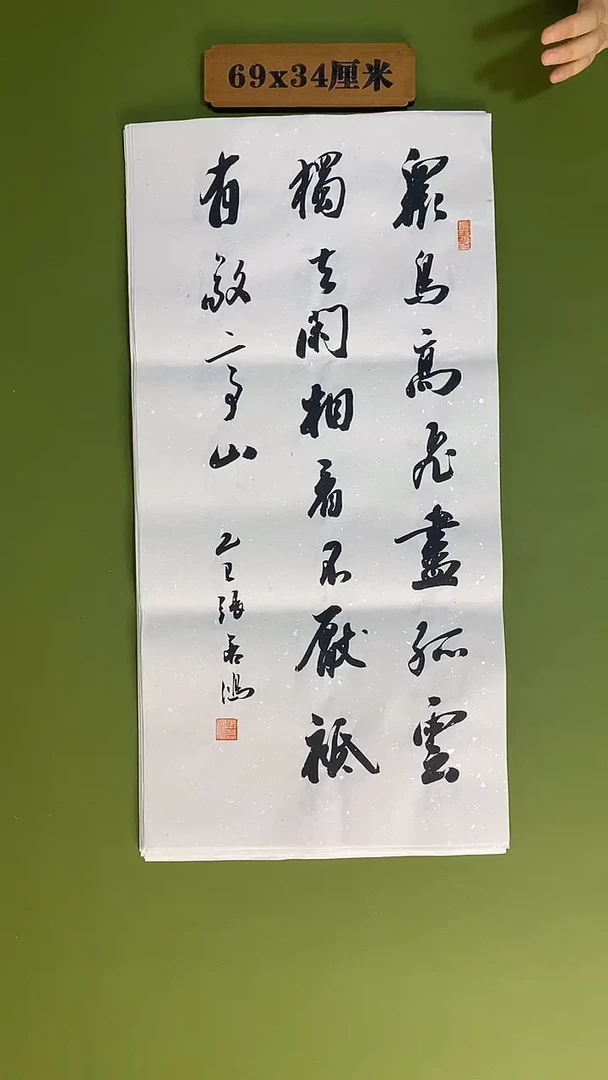 69x34厘米
眾鳥高飛盡孤雲
獨去閑相看不厭祗
有敬亭山
乙巳張若鴻